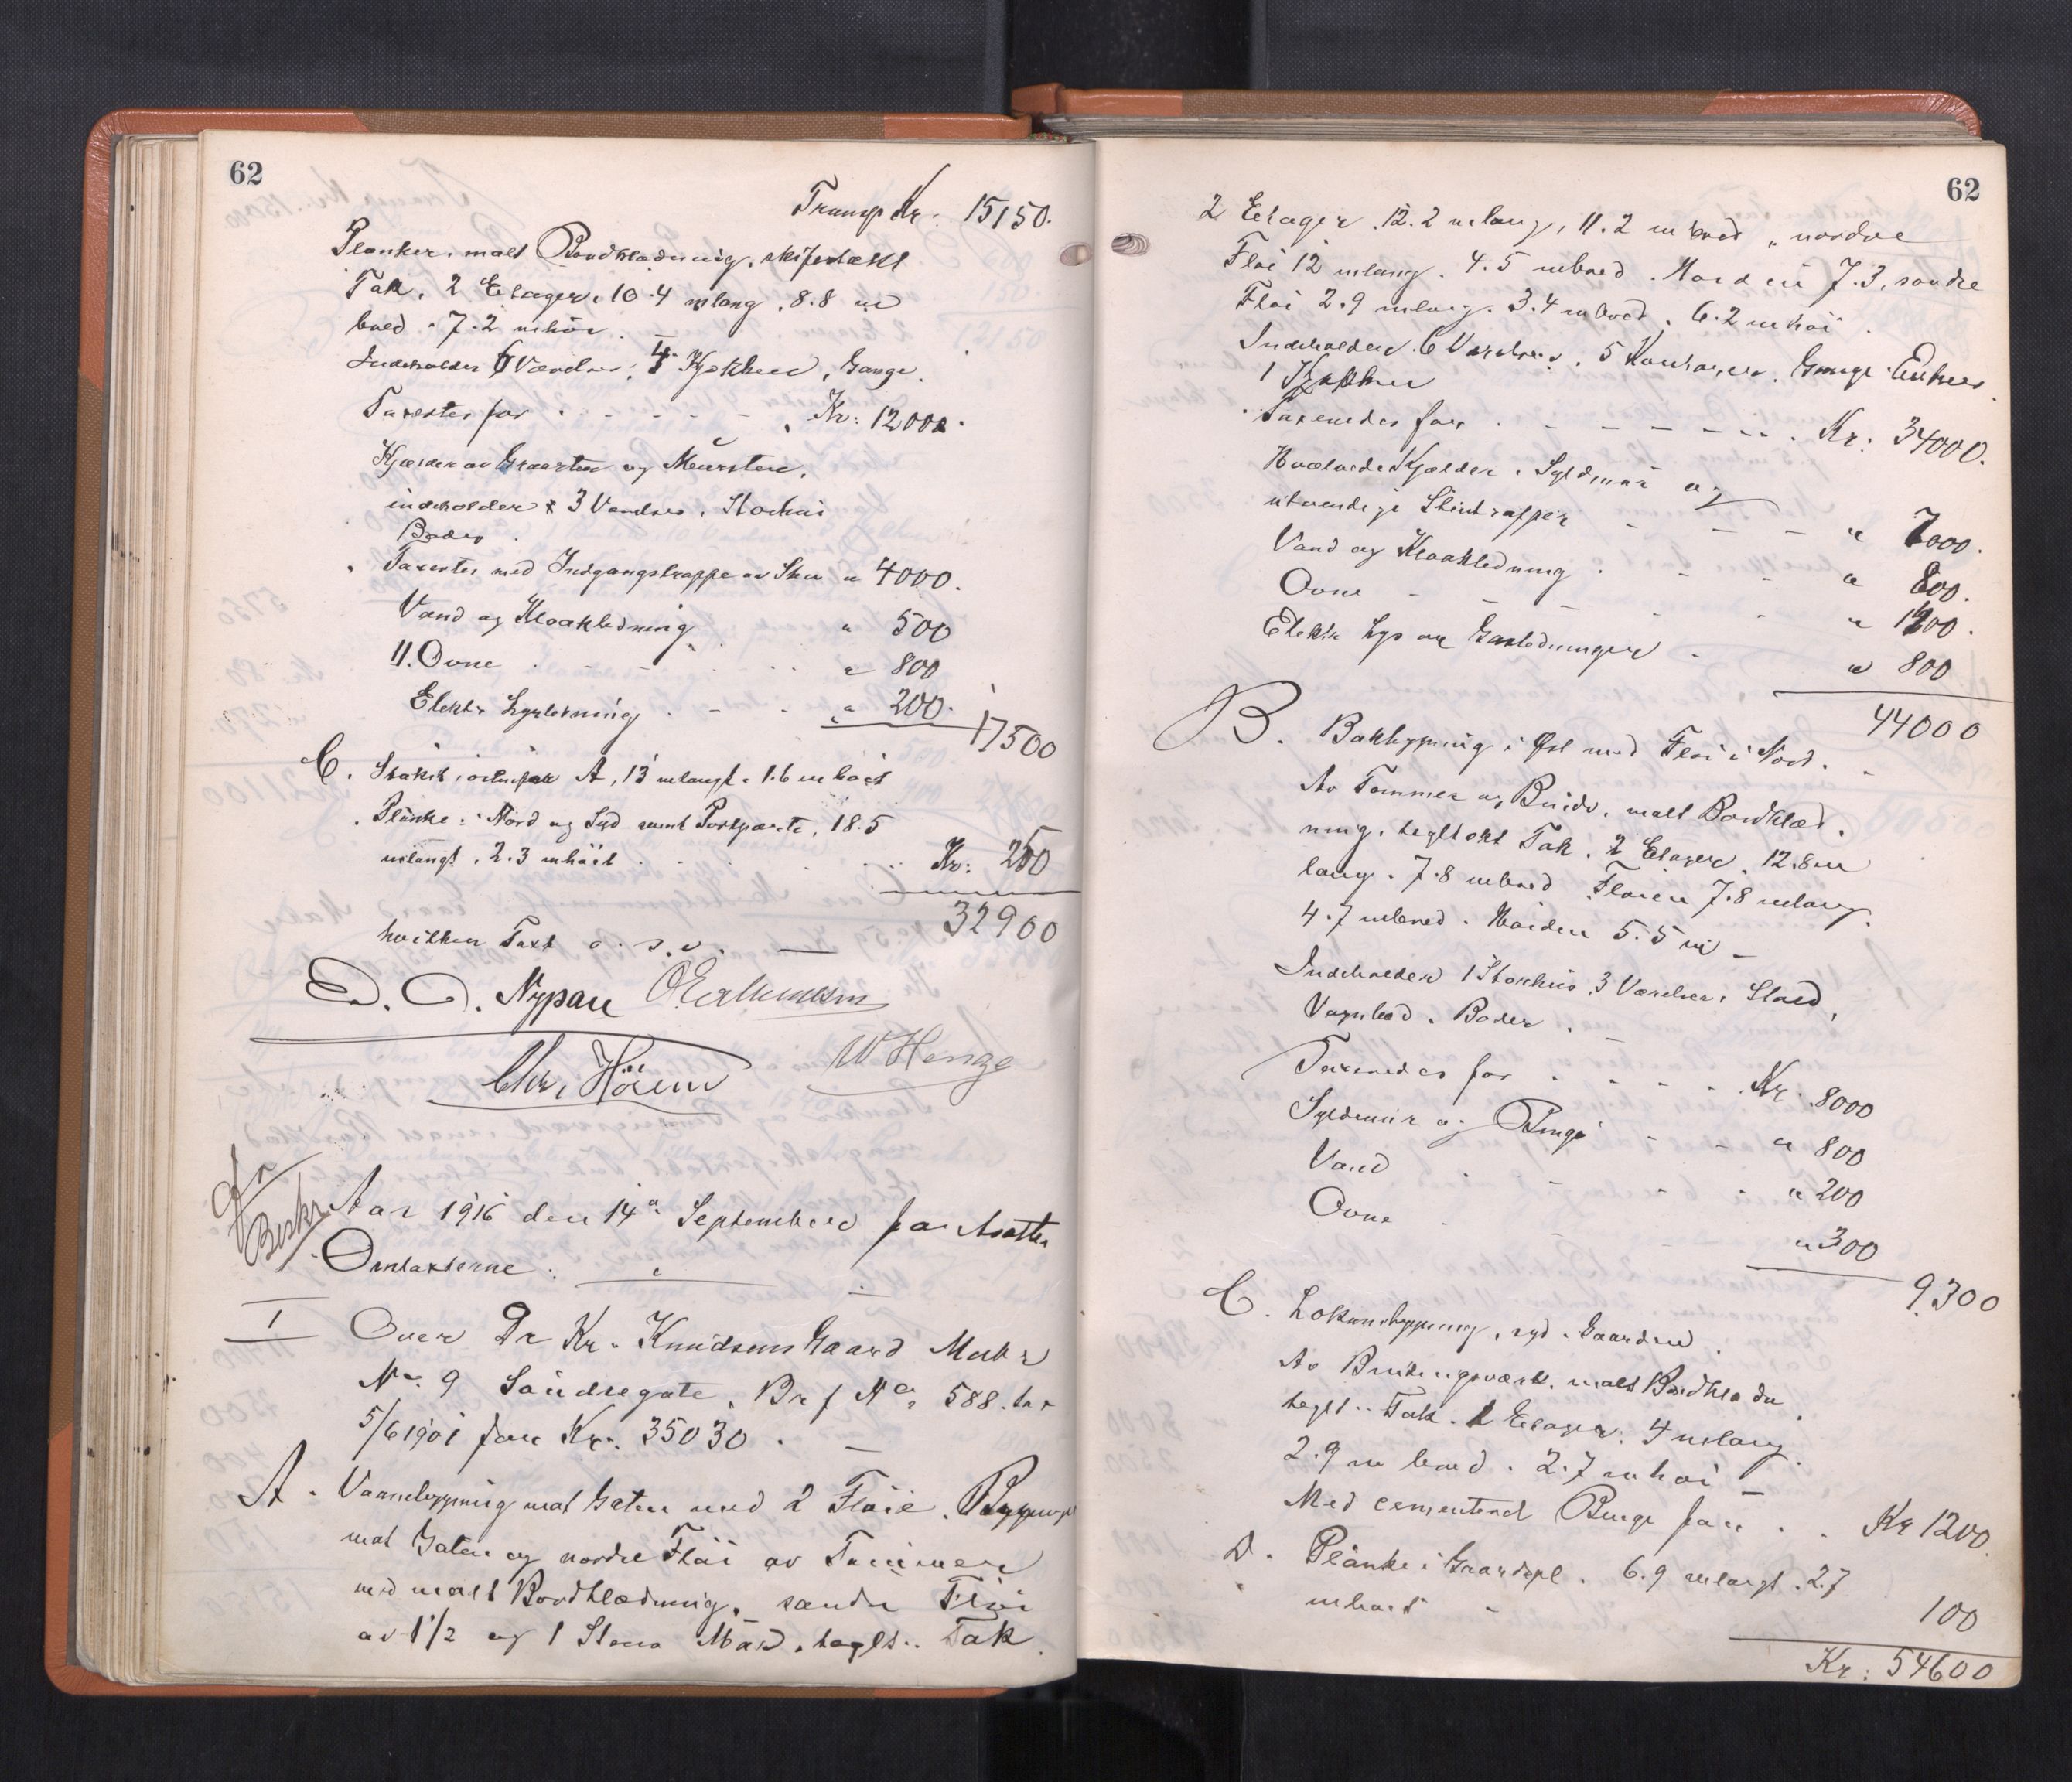 62
Transp Kr: 15150.
Planker, malt Bordklædning, skifertækt
Tak, 2 Etager, 10.4 m lang, 8.8 m
bred, 7.2 m høi.
Indeholder 6 Værelser, 4 Kjøkken, Gange.
Taxertes for . - - - - Kr: 12000.
Kjælder av Graasten og Mursten,
indeholder 3 Værelser, Storhus
Boder.
Taxertes med Indgangstrappe av Sten " 4000.
Vand og Kloakledning " 500
11. Ovne . - - - " 800
Elektr Lysledning . - - " 200.
17500
C. Stakit i østenfor A, 13 m langt, 1.6 m høit
Planke i Nord og Syd samt Portparti, 18.5
m langt, 2.3 m høit . . . Kr: 250
32900
hvilken Taxt o. s. v. —
E. O. Nypan
Chr. Høem
W Henge
Beskr
Aar 1916 den 14de September foretoges
Omtaxterne:
I Over Dr Kr. Knudsens Gaard Matr
No. 9 Søndregate, Brf No. 588. tax
5/6 1901 for Kr. 35030. —
A. Vaanebygning mot Gaten med 2 Fløie. Bygningen
mot Gaten og nordre Fløi av Tømmer
med malt Bordklædning, søndre Fløi
av 1 1/2 og 1 Stens Mur, teglt.. Tak.
62
2 Etager 12.2 m lang, 11.2 m bred, nordre
Fløi 12 m lang. 4.5 m bred. Høiden 7.3, søndre
Fløi 2.9 m lang. 3.4 m bred. 6.2 m høi.
Indeholder 6 Værelser, 5 Kontorer, Gange Entreer
1 Kjøkken
Taxeredes for . - - - - - Kr: 34000.
Hvælvede Kjælder, Syldmur og
utvendige Stentrapper - - - " 7000.
Vand og Kloakledning . - - " 800.
Ovne - - - - " 1400.
Elektr Lys og Gasledninger - " 800
44000
B. Bakbygning i Øst med Fløi i Nord. -
Av Tømmer og Bindv, malt Bordklæd-
ning, teglt økt Tak. 2 Etager, 12.8 m
lang, 7.8 m bred Fløien 7.8 m lang
4.7 m bred. Høiden 5.5 m —
Indeholder 1 Storhus, 3 Værelser, Stald,
Vognbod, Boder.
Taxeredes for . . . . . Kr. 8000
Syldmur og Binge - - " 800
Vand . - - " 200
Ovne - - - " 300
9300
C. Lokumsbygning, syd i Gaarden.
Av Bindingsværk, malt Bordklædn.
teglt.. Tak. 1 Etager. 4 m lang.
2.9 m bred. 2.7 m høi —
Med cementeret Binge for . . Kr 1200
D. Planke i Gaardspl. 6.9 m langt. 2.7
m høit - 100
Kr: 54600